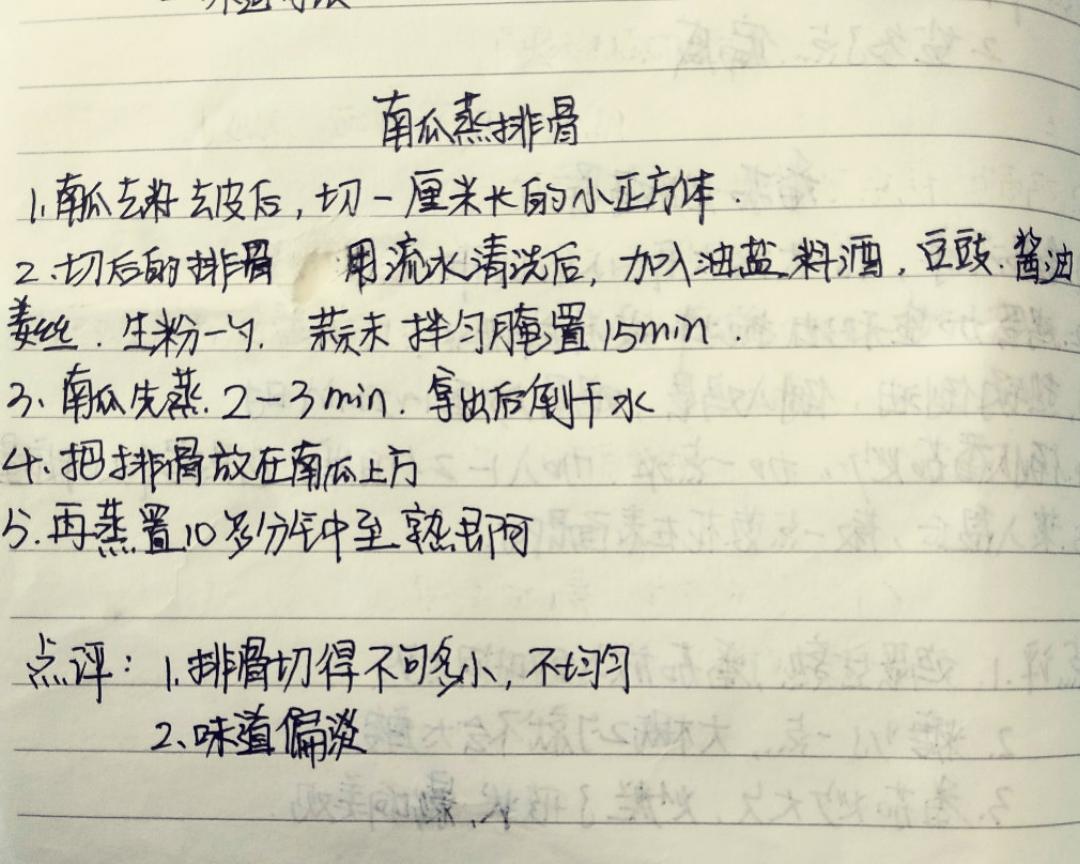 南瓜蒸排骨
1.南瓜去籽去皮后,切一厘米长的小正方体.
2.切后的排骨 用流水清洗后,加入油盐.料酒,豆豉.酱油
姜丝.生粉一勺.蒜末拌匀腌置15min.
3、南瓜先蒸.2-3min.拿出后倒干水
4.把排骨放在南瓜上方
5.再蒸置10多分钟至熟即可
点评:1.排骨切得不够小,不均匀
2、味道偏淡